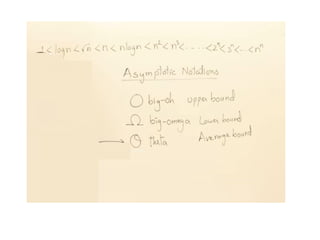 1 < log n < √n < n < n log n < n² < n³ < ...... < 2ⁿ < 3ⁿ < ... < nⁿ
Asymptotic Notations
O big-oh upper bound
Ω big-omega Lower bound
→ θ theta Average bound